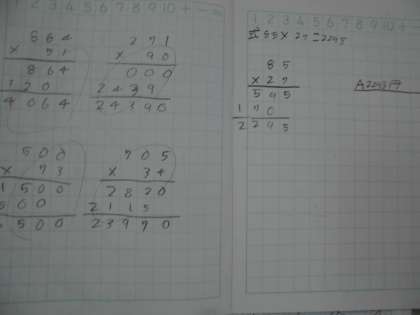 1 2 3 4 5 6 7 8 9 10 + −
864
× 51
864
20
4064
271
× 90
000
2439
24390
500
× 73
1500
500
500
705
× 34
2820
2115
23970
1 2 3 4 5 6 7 8 9 10 +
式 85×27=2295
85
×27
595
170
2295
A2295円